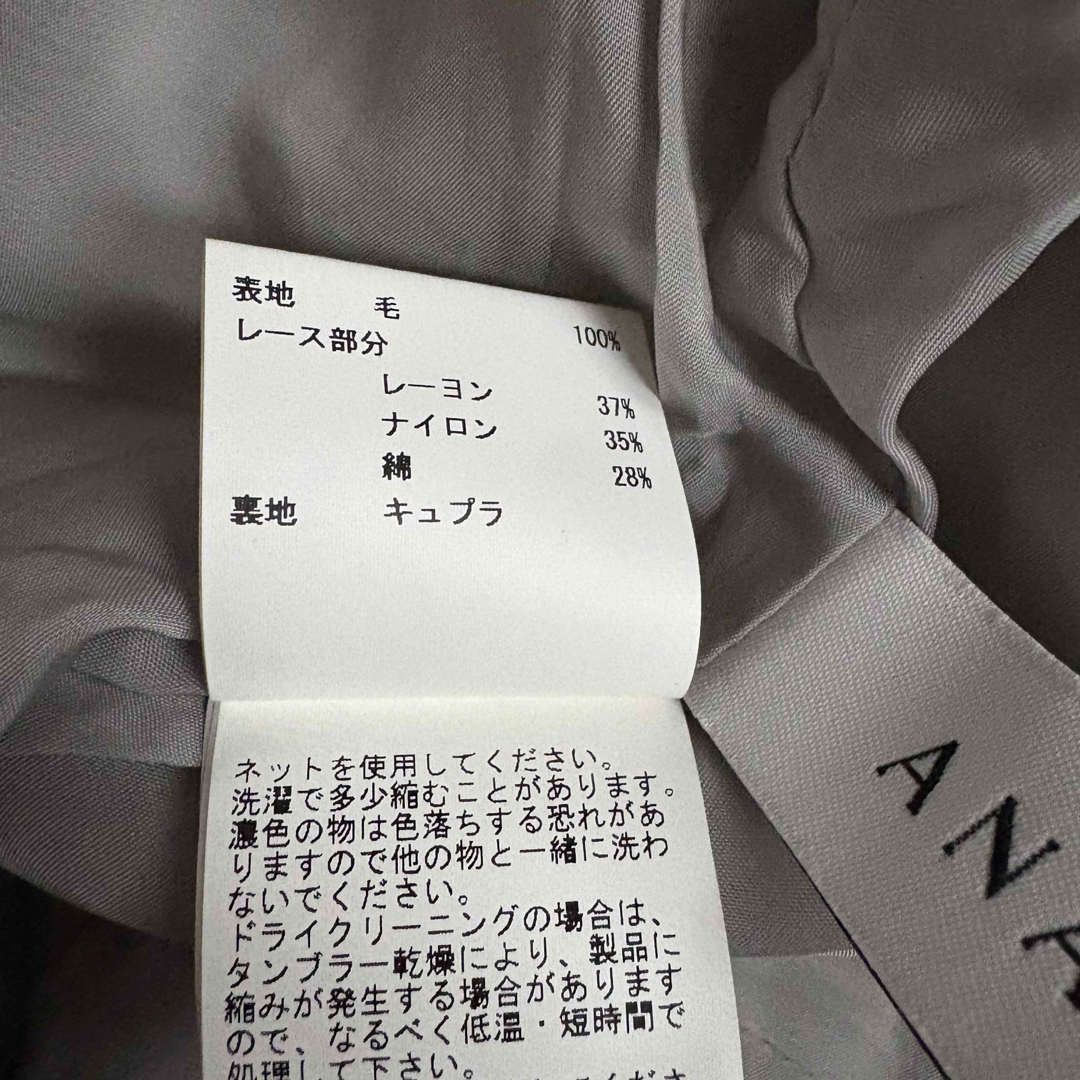 表地 毛 100%
レース部分
レーヨン 37%
ナイロン 35%
綿 28%
裏地 キュプラ
ネットを使用してください。
洗濯で多少縮むことがあります。
濃色の物は色落ちする恐れがあ
りますので他の物と一緒に洗わ
ないでください。
ドライクリーニングの場合は、
タンブラー乾燥により、製品に
縮みが発生する場合があります
ので、なるべく低温・短時間で
処理して下さい。
ANA